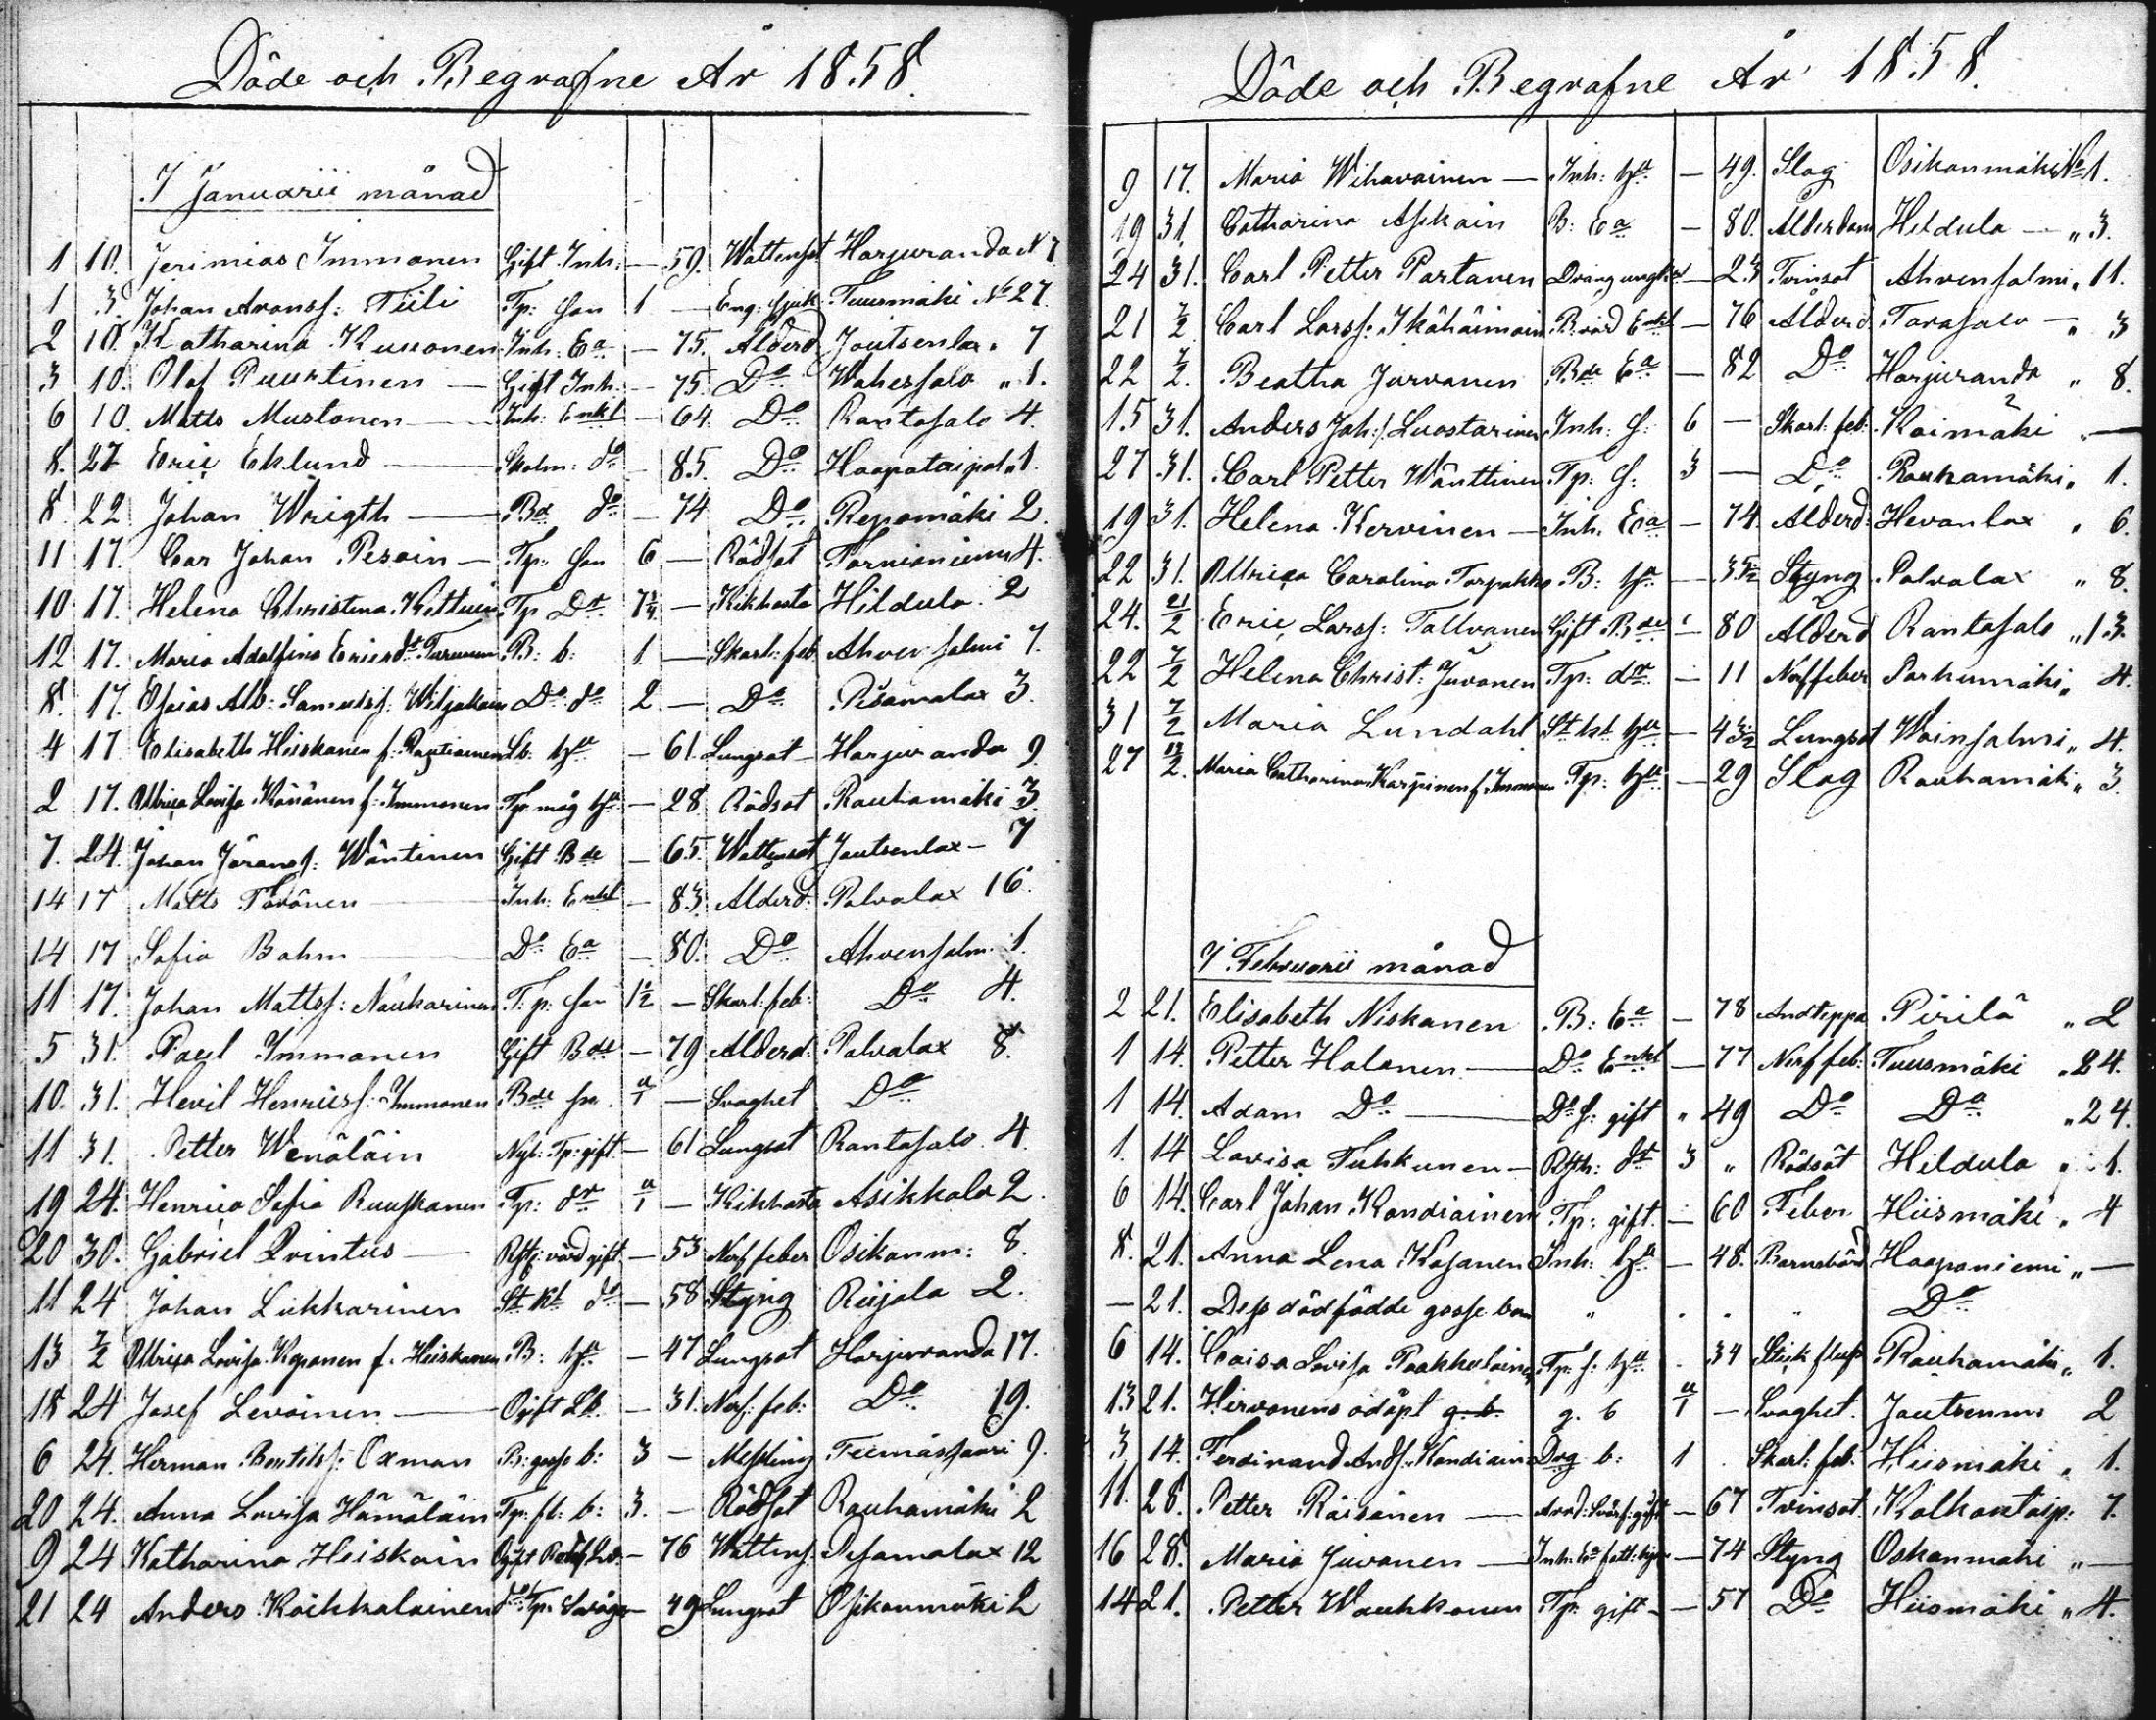 Döde och Begrafne År 1858.
I Januarii månad
1 10. Jerimias Immonen Gift Inh: — 59. Wattensot Harjuranda N 7
1 3. Johan Aronss: Tiili Tp: son 1 — Eng: sjuk Tuusmäki No 27
2 10. Katharina Kussonen Inh: Ea — 75. Ålderd Joutsenlax „ 7
3 10. Olof Puurtinen — Gift Inh: — 75. Do Wahersalo „ 1.
6 10. Matts Mustonen — Inh: Enkl — 64. Do Rantasalo 4.
8. 27 Eric Eklund — Skolm: do — 85. Do Haapataipal „ 1.
8. 22 Johan Wrigth — Bd do — 74 Do Repomäki 2.
11 17. Car Johan Pesoin — Tp: son 6 — Rödsot Tornioniemi 4.
10 17. Helena Christina Kettuin Tp Dr 7¾ — Kikhosta Hildula 2
12 17. Maria Adolfina Ericsdr Turunen B: b: 1. — Skarl: feb Ahvensalmi 7.
8. 17. Esaias Alb: Samuelss: Wiljakain Do do 2 — Do Pisamalax 3.
4 17 Elisabeth Hiiskanen f: Rautiainen Lb. hu — 61. Lungsot — Harjuranda 9.
2 17. Ulrica Lovisa Käiänen f: Immonen Tp måg hu — 28 Rödsot Rauhamäki 3.
7. 24. Johan Göranss: Wäntinen Gift Bde — 65. Wattensot Joutsenlax — 7
14 17 Matts Tavönen Inh: Enkl — 83. Ålderd: Palvalax 16.
14 17 Sofia Bohm — Do Ea — 80. Do Ahvensalm. 1.
11 17. Johan Mattss: Naukarinen T: p: son 1½ — Skarl: feb: Do 4.
5 31. Paul Immonen Gift Bde — 79 Ålderd: Palvalax 8.
10. 31. Hevil Henricss: Immonen Bde son u/1 — Svaghet Do
11 31. Petter Wenäläin Nyb: Tp: gift. — 61 Lungsot Rantasalo 4.
19 24. Henrica Sofia Ruuskanen Tp: dr u/1 — Kikhosta Asikkala 2.
20 30. Gabriel Qvintus — vård gift. — 53 Nerffeber Osikonm: 8.
11 24 Johan Liikkarinen St kt do — 58 Styng Riijola 2.
13 7/2 Ulrica Lovisa Koponen f. Heiskanen B: hu — 47 Lungsot Harjuranda 17.
18 24 Josef Levoinen — Ogift Lb — 31. Nerf: feb: Do 19.
6 24. Herman Bentilss: Oxman B: gosse b: 3 — Messling Teemassaari 9.
20 24. Anna Lovisa Hämäläin Tp: fl: b: 3. — Rödsot Rauhamäki 2
9 24 Katharina Heiskain Gift — 76 Wattens: Pisamalax 12
21 24 Anders Käikkalainen do Tp: Svåger — 49 Lungsot Osikonmäki 2
Döde och Begrafne År 1858.
9 17. Maria Wihavainen — Inh: hu — 49. Slag Osikonmäki No 1.
19 31. Catharina Askain B: Ea — 80. Ålderdom Hildula — „ 3.
24 31. Carl Petter Partanen Dräng ungk: — 23 Tvinsot Ahvensalmi „ 11.
21 7/2 Carl Larss: Ikähäimoin B.värd Enkl — 76 Ålderd Tavasalo — „ 3
22 7/2. Beatha Jurvanen Bde Ea — 82 Do Harjuranda „ 8.
15 31. Anders Joh: s: Luostarinen Inh: s: 6 — Skarl: feb: Koimäki „ —
27 31. Carl Petter Wänttinen Tp: s: 3 — Do Rauhamäki „ 1.
19 31. Helena Kervinen — Inh. Ea — 74. Ålderd: Hevonlax „ 6.
22 31. Ullrica Carolina Torpakko B: hu — 35/12 Styng Palvalax „ 8.
24. 21/2 Eric Larss: Tallvanen Gift Bde — 80 Ålderd Rantasalo „ 13.
22 7/2 Helena Christ: Juvonen Tp: dr — 11 Nerffeber Parkumäki „ 4.
31 7/2 Maria Lundahl St kt hu — 43/12 Lungsot Wainsalmi „ 4.
27 12/2. Maria Catharina Karpinen f Immonen Tp: hu — 29 Slag Rauhamäki „ 3.
I Februarii månad
2 21. Elisabeth Niskanen B: Ea — 78 Andteppa Pirilä „ 2
1 14. Petter Holonen — Do Enkl — 77 Nerffeb: Tuusmäki „ 24.
1 14. Adam Do — Do s: gift „ 49 Do Do „ 24.
1. 14 Lovisa Tuhkunen — dt 3 „ Rödsot Hildula „ 1.
6 14. Carl Johan Kondiainen Tp: gift. — 60 Feber Hiismäki „ 4
8. 21. Anna Lena Kosonen Inh: hu — 48. Barnsbörd Haaponiemi „ —
— 21. Dess dödfödde gosse barn „ „ Do
6 14. Caisa Lovisa Paakkulainen Tp: s: hu . 34 Stickfluss Rauhamäki „ 1.
13 21. Hirvonens odöpt g. b. g. b u/1 — Svaghet. Joutsenmi 2
3 14. Ferdinand Ands: Kondiain Drg b: 1 . Skarl: feb. Hiismäki „ 1.
11. 28. Petter Räisänen — Svärf: gift — 67 Tvinsot. Kolkontaip: 7.
16 28. Maria Juvonen — Inh: Ea — 74 Styng Oskonmäki „ —
14 21. Petter Wauhkonen Tp: gift — — 57 Do Hiismäki „ 4.